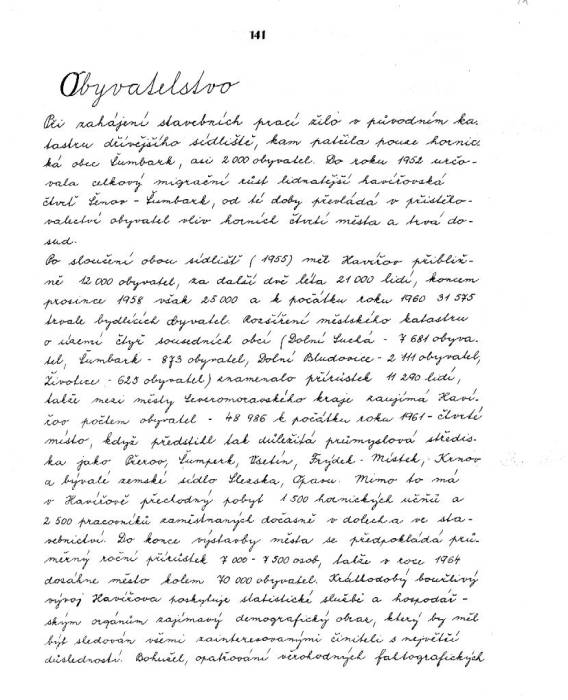 141
Obyvatelstvo
Při zahájení stavebních prací žilo v původním ka-
tastru dřívějšího sídliště, kam patřila pouze hornic-
ká obec Šumbark, asi 2 000 obyvatel. Do roku 1952 určo-
vala celkový migrační růst lidnatější havířovská
čtvrť Šenov - Šumbark, od té doby převládá v přistěho-
valectví obyvatel vliv horních čtvrtí města a trvá do-
sud.
Po sloučení obou sídlišť (1955) měl Havířov přibliž-
ně 12 000 obyvatel, za další dvě léta 21 000 lidí, koncem
prosince 1958 však 25 000 a k počátku roku 1960 31 575
trvale bydlících obyvatel. Rozšíření městského katastru
o území čtyř sousedních obcí (Dolní Suchá - 7 681 obyva-
tel, Šumbark - 873 obyvatel, Dolní Bludovice - 2 111 obyvatel,
Životice - 623 obyvatel) znamenalo přírůstek 11 290 lidí,
takže mezi městy Severomoravského kraje zaujímá Haví-
řov počtem obyvatel - 48 986 k počátku roku 1961 - čtvrté
místo, když předstihl tak důležitá průmyslová středis-
ka jako Přerov, Šumperk, Vsetín, Frýdek - Místek, Krnov
a bývalé zemské sídlo Slezska, Opavu. Mimo to má
v Havířově přechodný pobyt 1 500 hornických učňů a
2 500 pracovníků zaměstnaných dočasně v dolech a ve sta-
vebnictví. Do konce výstavby města se předpokládá prů-
měrný roční přírůstek 7 000 - 7 500 osob, takže v roce 1964
dosáhne město kolem 70 000 obyvatel. Krátkodobý bouřlivý
vývoj Havířova poskytuje statistické službě a hospodář-
ským orgánům zajímavý demografický obraz, který by měl
být sledován všemi zainteresovanými činiteli s největší
důsledností. Bohužel, opatřování věrohodných faktografických